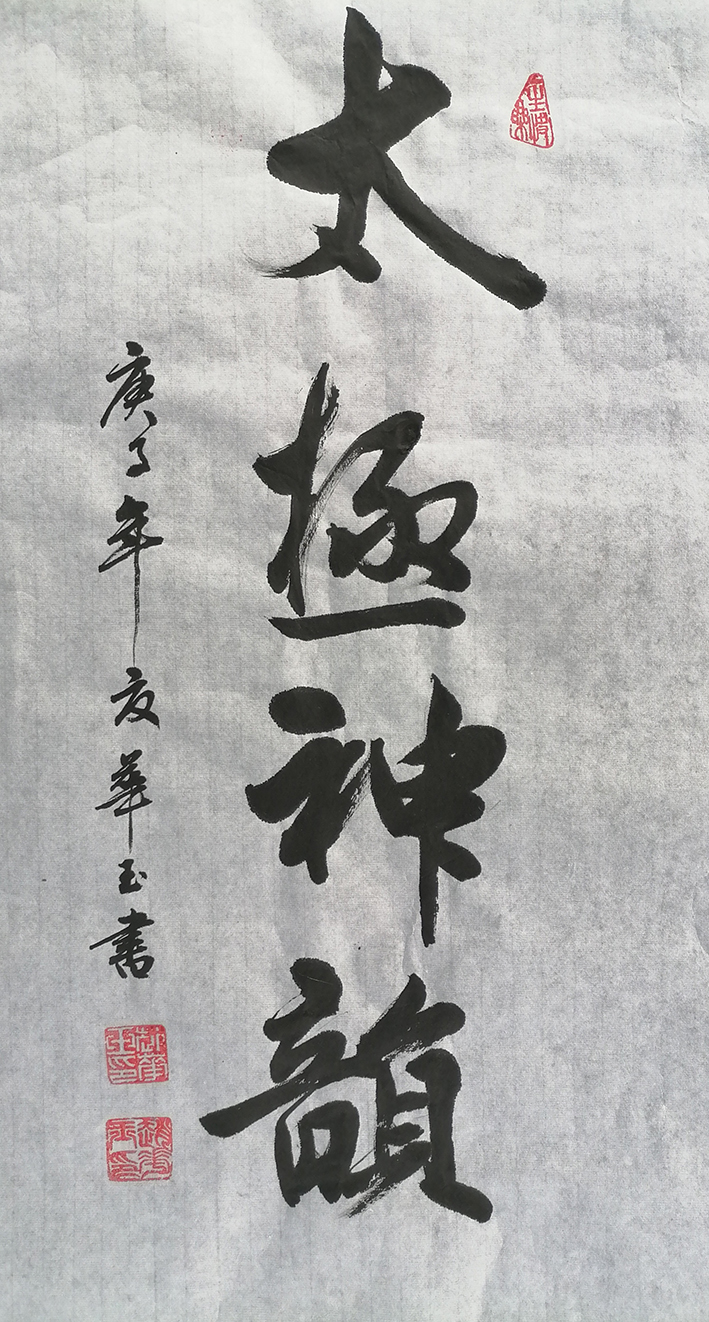 太極神韻
庚子年夏華玉書